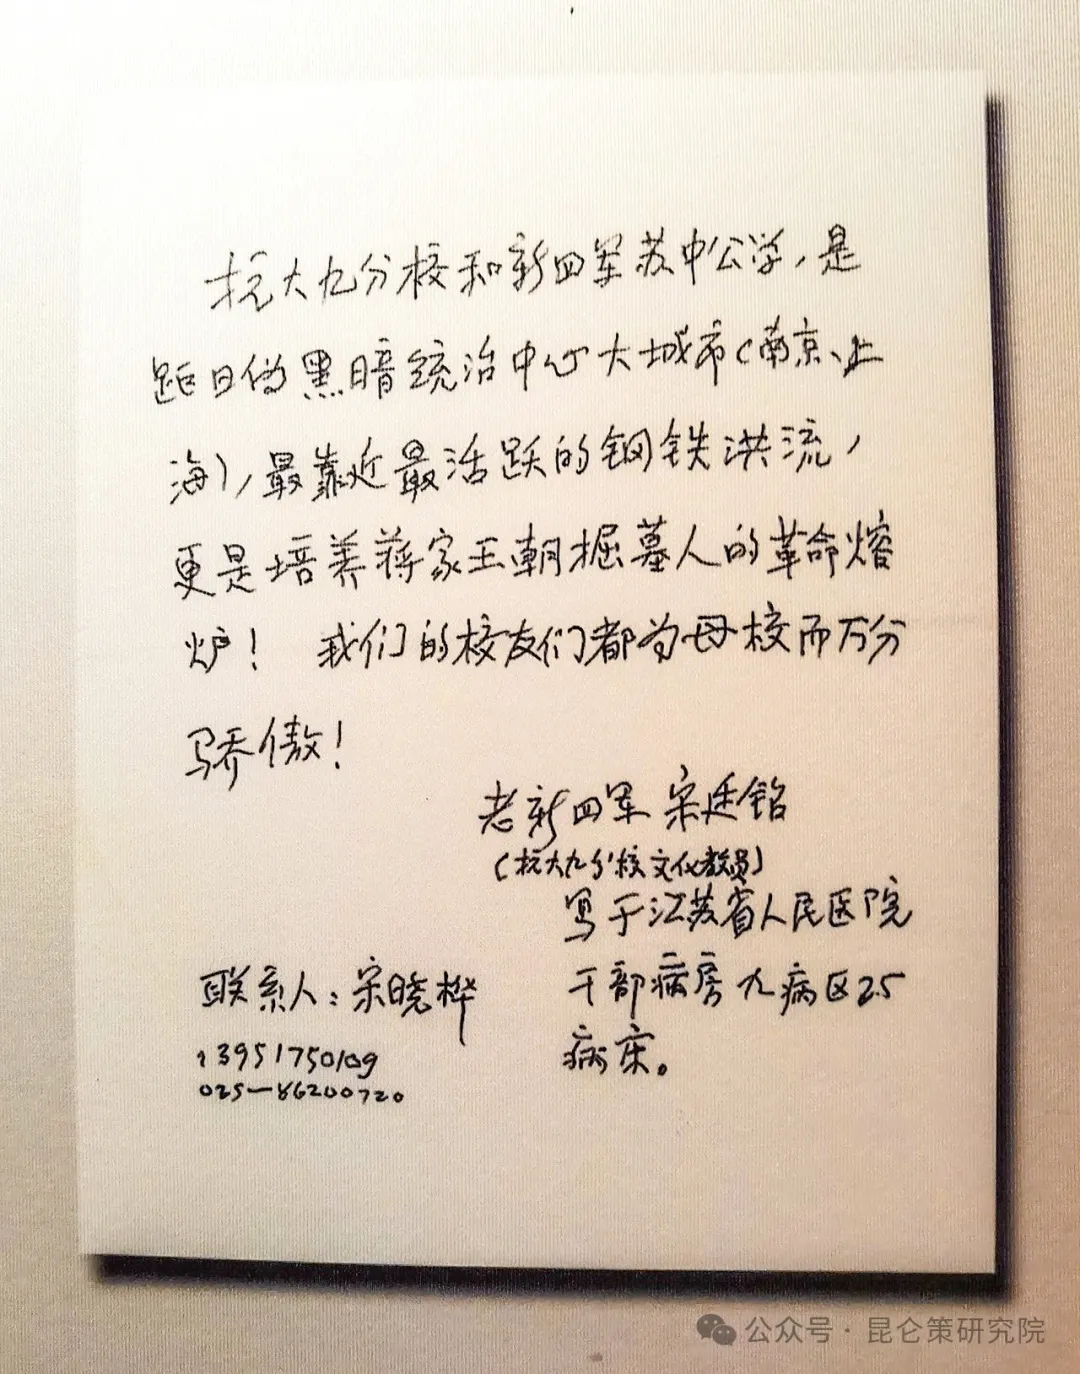 抗大九分校和新四军苏中公学，是
距日伪黑暗统治中心大城市（南京、上
海），最靠近最活跃的钢铁洪流，
更是培养蒋家王朝掘墓人的革命熔
炉！ 我们的校友们都为母校而万分
骄傲！
老新四军 宋廷铭
（抗大九分校文化教员）
写于江苏省人民医院
干部病房九病区25
病床。
联系人：宋晓桦
13951750109
025—86200720
公众号·昆仑策研究院